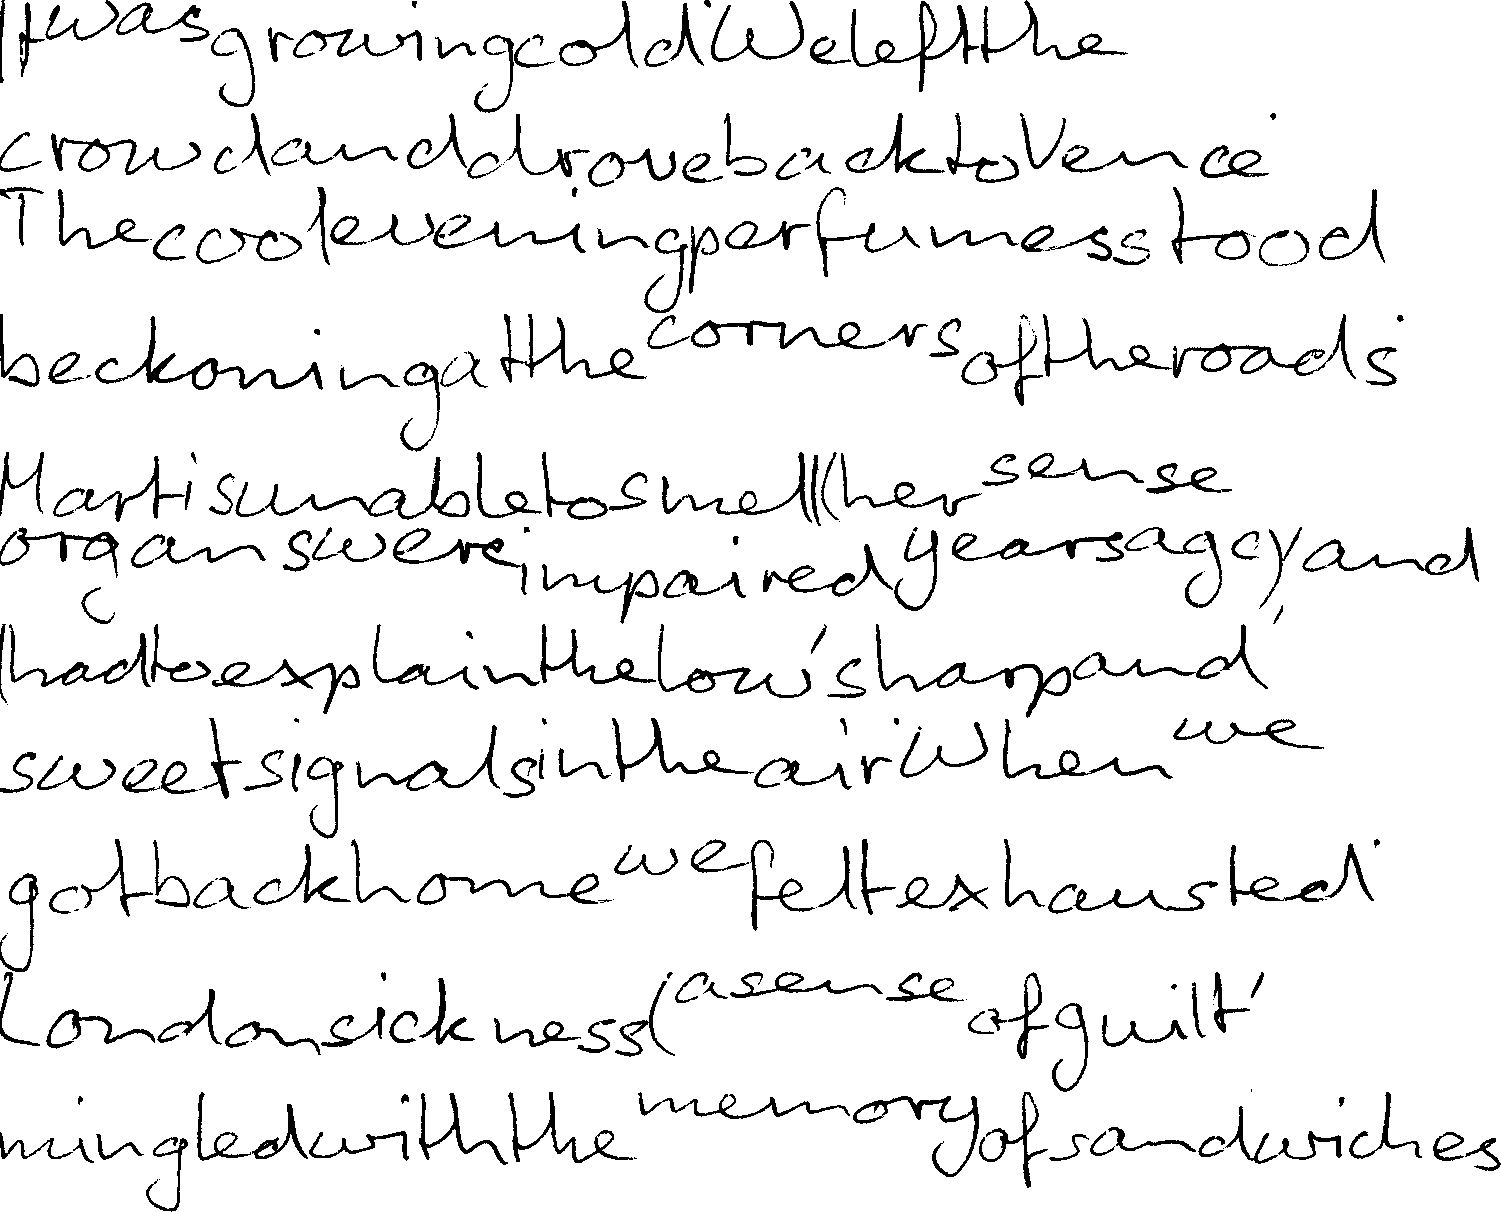 It was growing cold. We left the
crowd and drove back to Vence.
The cool evening perfumes stood
beckoning at the corners of the roads.
Mart is unable to smell (her sense
organs were impaired years ago) and
I had to explain the low, sharp and
sweet signals in the air. When we
got back home we felt exhausted.
London, sickness (a sense of guilt,
mingled with the memory of sandwiches